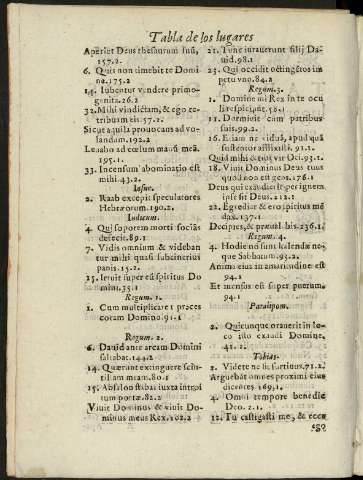 Tabla de los lugares
Aperiet Deus thesaurum suũ,
157.2.
6. Quis non timebit te Domi
ne.175.2
15. Iubentur vendere primo-
genita.26.2
32. Mihi vindictam, & ego re-
tribuam eis.57.2.
Sicut aquila prouocans ad vo-
landum.192.2
Leuabo ad cœlum manũ meã.
195.1.
33. Incensum abominatio est
mihi.43.2.
Iosue.
2. Raab excepit speculatores
Hebræorum.190.2.
Iudicum.
4. Qui soporem morti sociãs
defecit.89.1
7. Vidis omnium & videban
tur mihi quasi subcinerius
panis.15.2.
15. Irruit super eũ spiritus Do
mini.35.1
Regum. 1.
1. Cum multiplicaret præces
coram Domino 91.1
Regum. 2.
6. Dauid ante arcam Domini
saltabat.144.2
14. Quærunt extinguere scin-
tillam meam.80.1
15. Absalon stabat iuxta introi
tum portæ.82.2
Viuit Dominus & viuit Do-
minus meus Rex.102.2
21. Tunc iurauerunt filij Da-
uid.98.1
23. Qui occidit octingẽtos im
petu vno.84.2
Regum.3.
1. Domine mi Rex in te ocu
li respiciunt.58.1
11. Dormisse cum patribus
suis.99.2.
16. Etiam ne viduã, apud quã
sustentor afflixisti. 91.1.
Quid mihi & tibi vir
18. Viuit Dominus Deus tuus
quod non est gens.176.1
Deus qui exaudierit per ignem
ipse sit Deus.212.1
22. Egrediar & ero spiritus mẽ
dax.137.1
Decipies, & præualebis.236.1
Regum.4.
4. Hodie non sunt kalendæ ne-
que Sabbatum.93.2.
Anima eius in amaritudine est
94.1
Et mensus est super puerum.
94.1
Paralipom.
2. Quicunque orauerit in lo-
co isto exaudi Domine.
42.1.
Tobias.
2. Videte ne sit furtiuus.71.2.
Arguebat omnes proximi eius
dicentes.169.1.
4. Omni tempore benedic
Deo.2.1.
12. Tu castigasti me, & ecce
ego